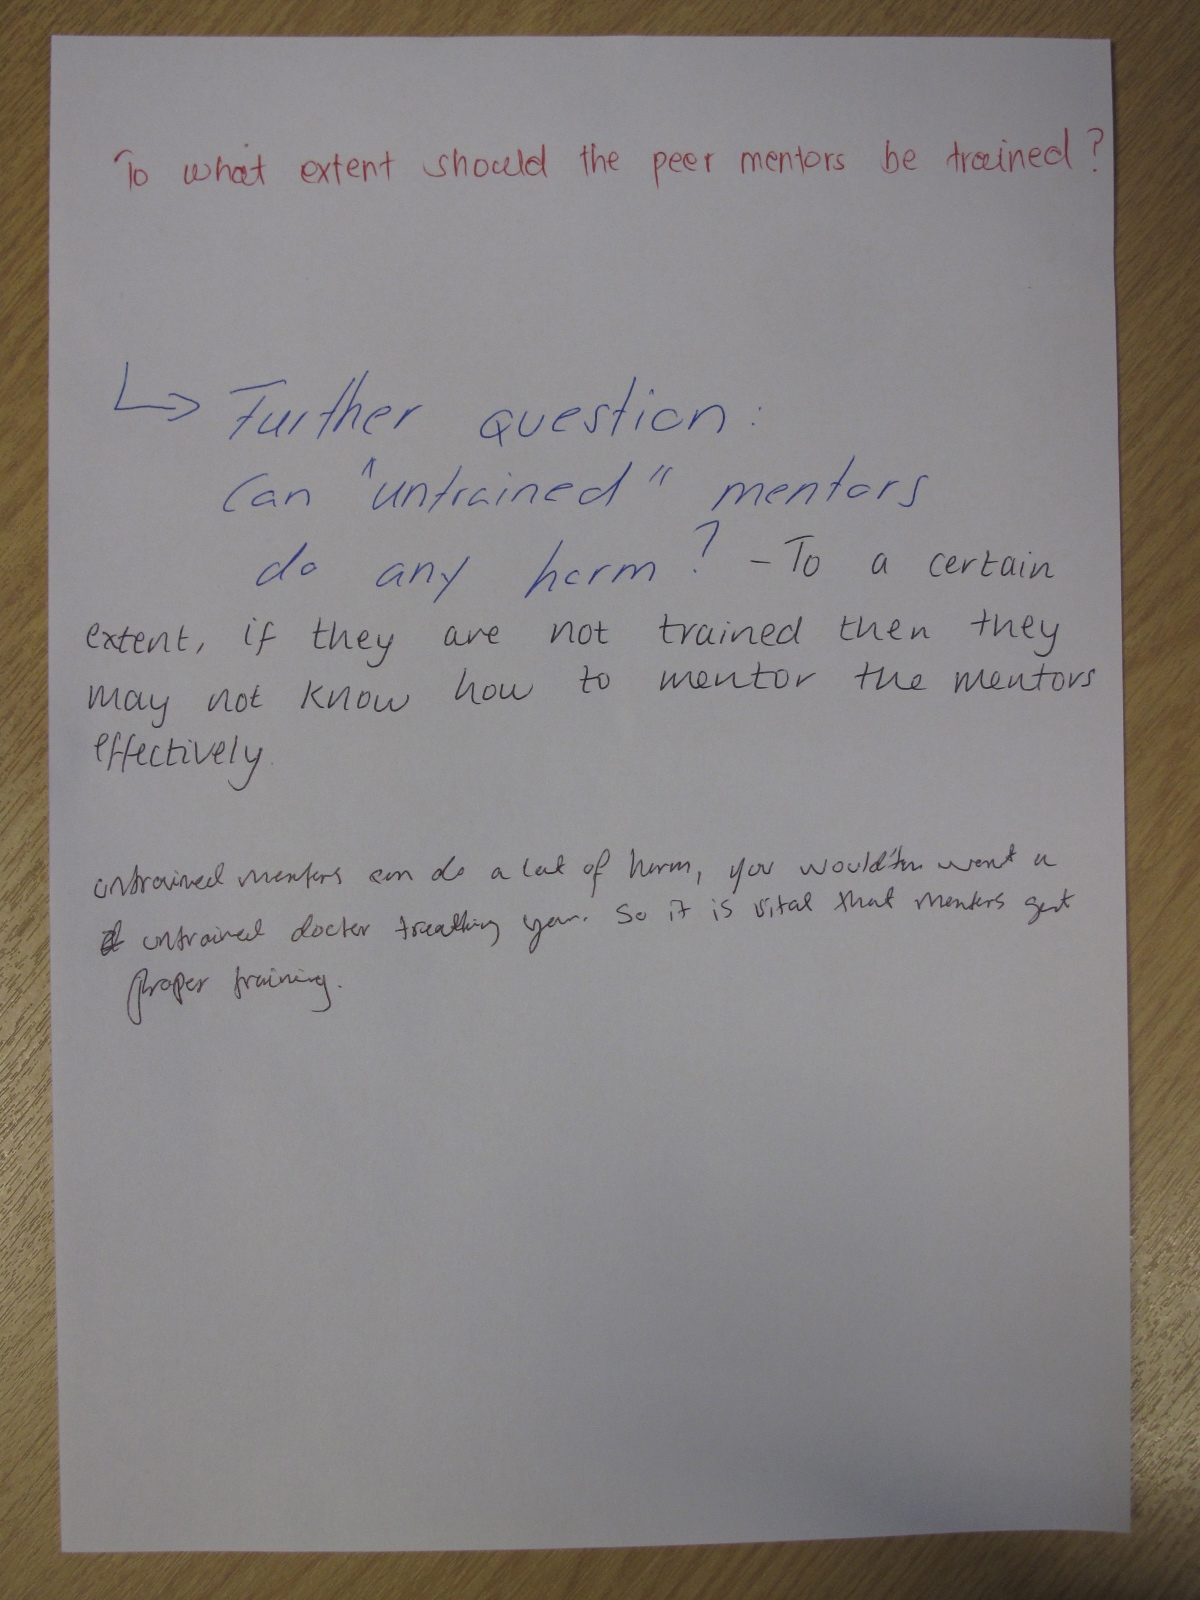 To what extent should the peer mentors be trained?
↳ Further question:
Can "untrained" mentors
do any harm? - To a certain
extent, if they are not trained then they
may not know how to mentor the mentors
effectively.
untrained mentors can do a lot of harm, you would'tn want a
untrained doctor treating you. So it is vital that mentors get
proper training.